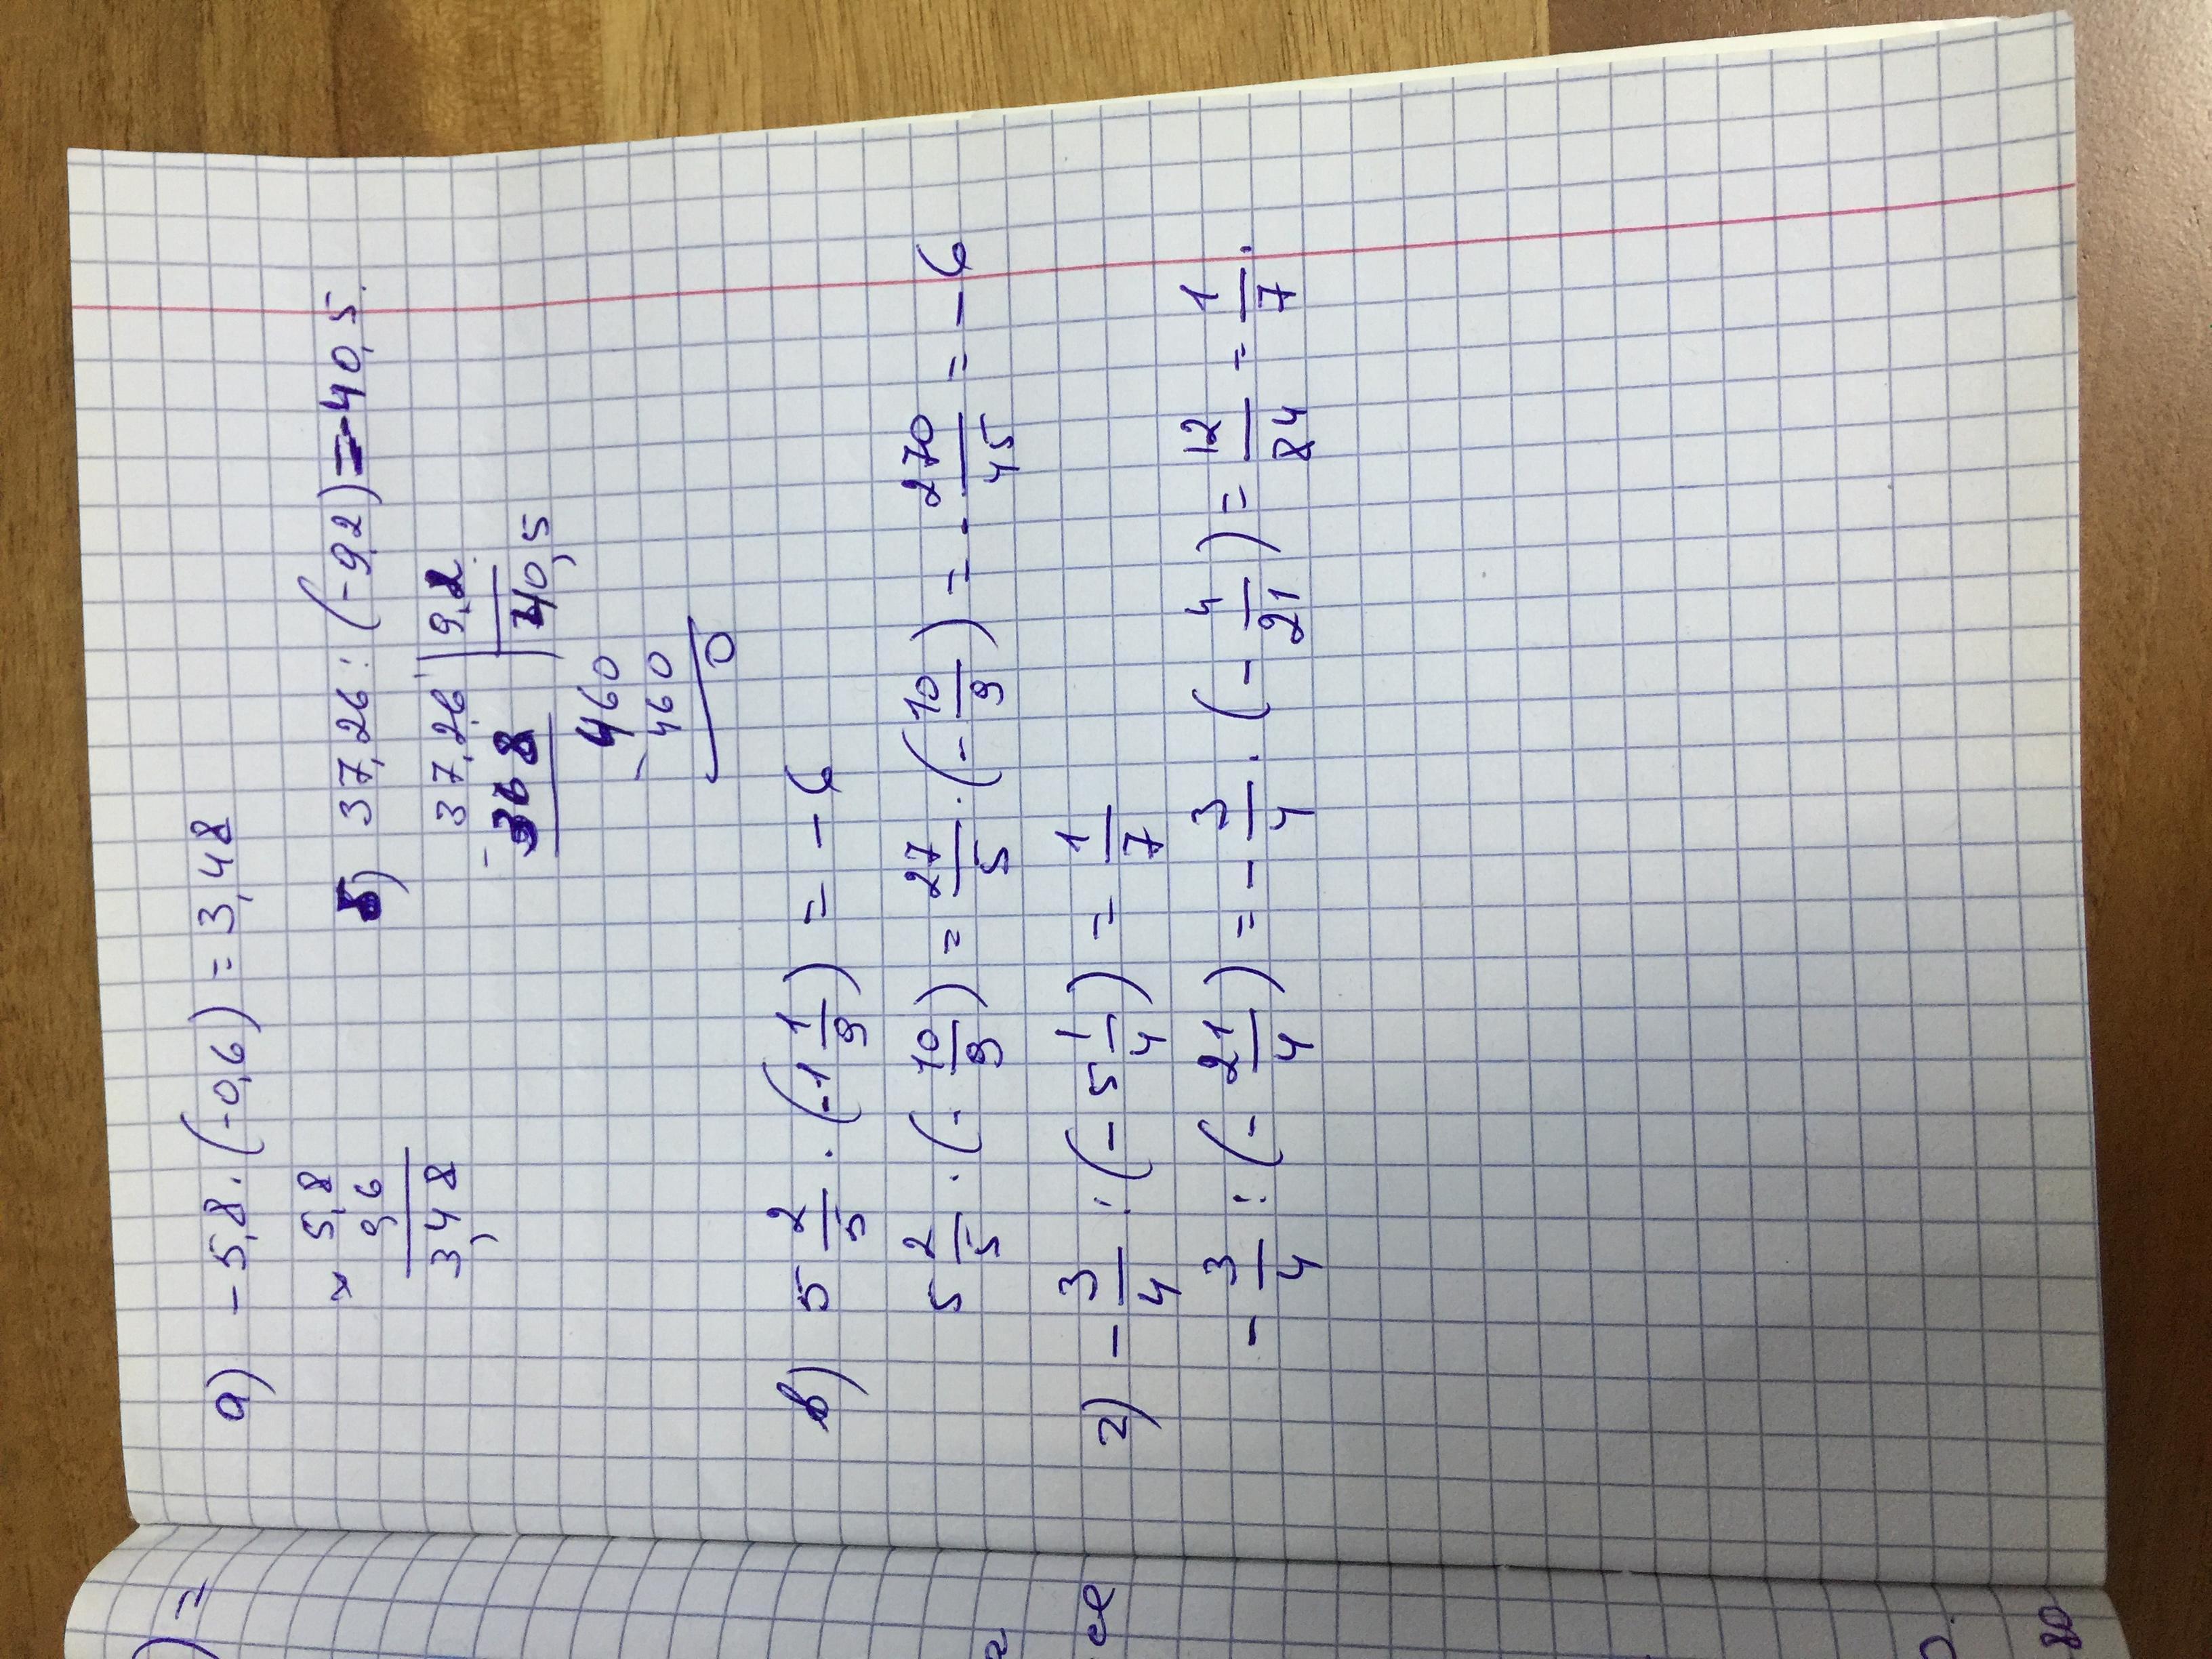 а) -5,8 · (-0,6) = 3,48
× 5,8
0,6
3,48
б) 37,26 : (-9,2) = -40,5.
37,26 | 9,2
- 368 | 40,5
- 460
460
0
в) 5 2/5 · (-1 1/9) = -6
5 2/5 · (-10/9) = 27/5 · (-10/9) = -270/45 = -6
г) -3/4 : (-5 1/4) = 1/7
-3/4 : (-21/4) = -3/4 · (-4/21) = 12/84 = 1/7.
) =
се
80